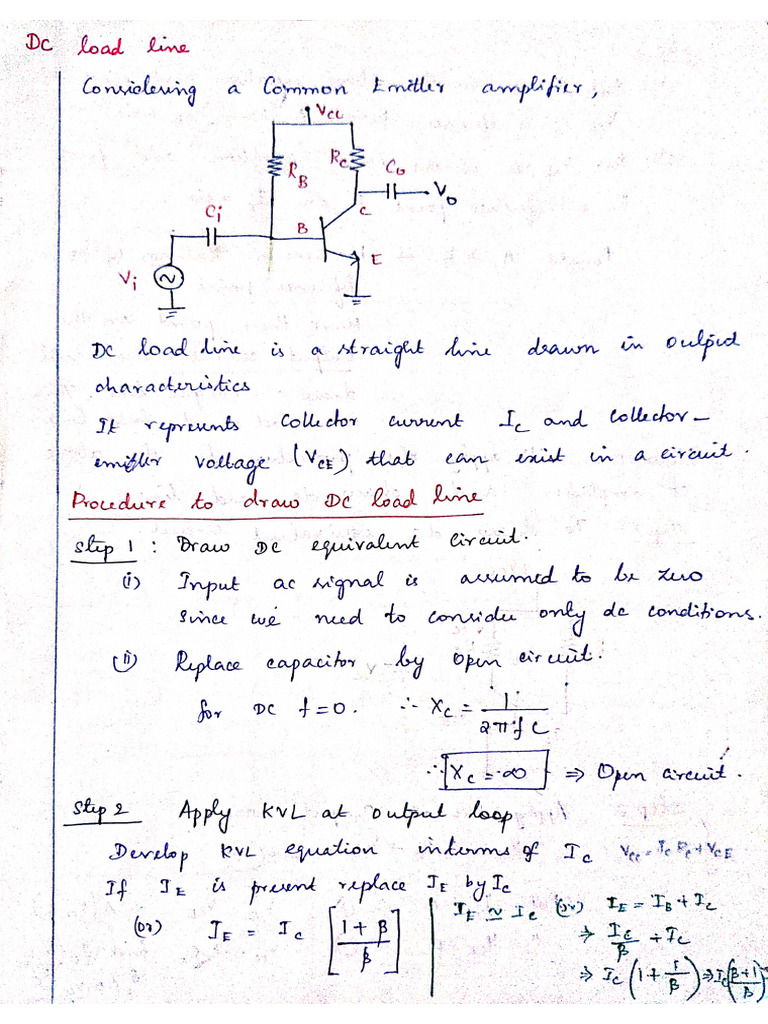 DC load line
Considering a Common Emitter amplifier,
VCC
RB
RC
Co
Vo
Ci
B
C
E
Vi
DC load line is a straight line drawn in output
characteristics
It represents collector current IC and collector-
emitter voltage (VCE) that can exist in a circuit.
Procedure to draw DC load line
Step 1 : Draw DC equivalent circuit.
(i) Input ac signal is assumed to be zero
since we need to consider only dc conditions.
(ii) Replace capacitor by open circuit.
for DC f=0. ∴ XC = 1/2πfC
∴ XC = ∞ ⇒ Open circuit.
Step 2 Apply KVL at output loop
Develop KVL equation interms of IC VCC = IC RC + VCE
If IE is present replace IE by IC
(or) IE = IC [1+β/β]
IE ≃ IC (or) IE = IB + IC
⇒ IC/β + IC
⇒ IC (1+1/β) ⇒ IC(β+1/β)